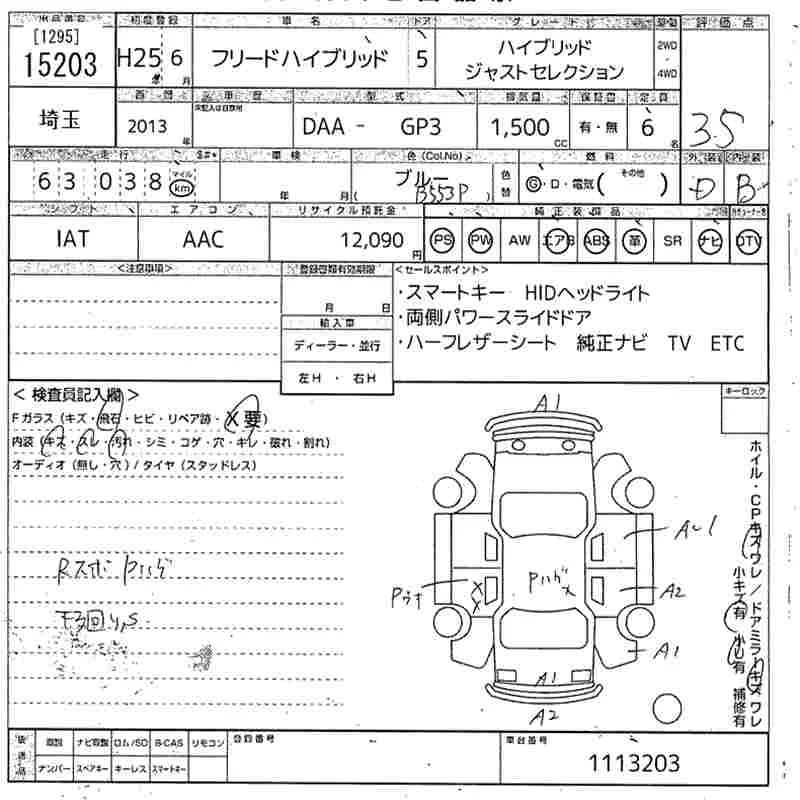 出品番号 初度登録 車名 ドア グレード 駆動 評価点
[1295]
15203 H25年 6月 フリードハイブリッド 5 ハイブリッド
ジャストセレクション 2WD
4WD
3.5
埼玉
西暦 車歴 型式 排気量 保証書 定員
2013年 DAA - GP3 1,500cc 有・無 6名
走行 車検 色(Col.No) 燃料 外装 内装
63,038 マイル km 年 月 ブルー (B553P) 色替 G・D・電気( その他 ) D B
シフト エアコン リサイクル預託金 純正装備品
IAT AAC 12,090円 PS PW AW エアB ABS 革 SR ナビ DTV
<注意事項> 登録書類有効期限 <セールスポイント>
月 日
・スマートキー HIDヘッドライト
・両側パワースライドドア
・ハーフレザーシート 純正ナビ TV ETC
輸入車
ディーラー・並行
左H ・ 右H
キーロック
<検査員記入欄>
Fガラス(キズ・飛石・ヒビ・リペア跡・X要)
内装(キズ・スレ・汚れ・シミ・コゲ・穴・キレ・破れ・割れ)
オーディオ(無し・穴)/タイヤ(スタッドレス)
Rスポ Pハゲ
下回り,S
A1
A1
Pウキ
Pハゲ
A2
A1
A1
A2
ホイル・CPキズワレ/ドアミラーキズワレ
小キズ有 小凹有 補修有
後送品 取説 ナビ取説 ロム/SD B-CAS リモコン 登録番号 車台番号
ナンバー スペアキー キーレス スマートキー 1113203